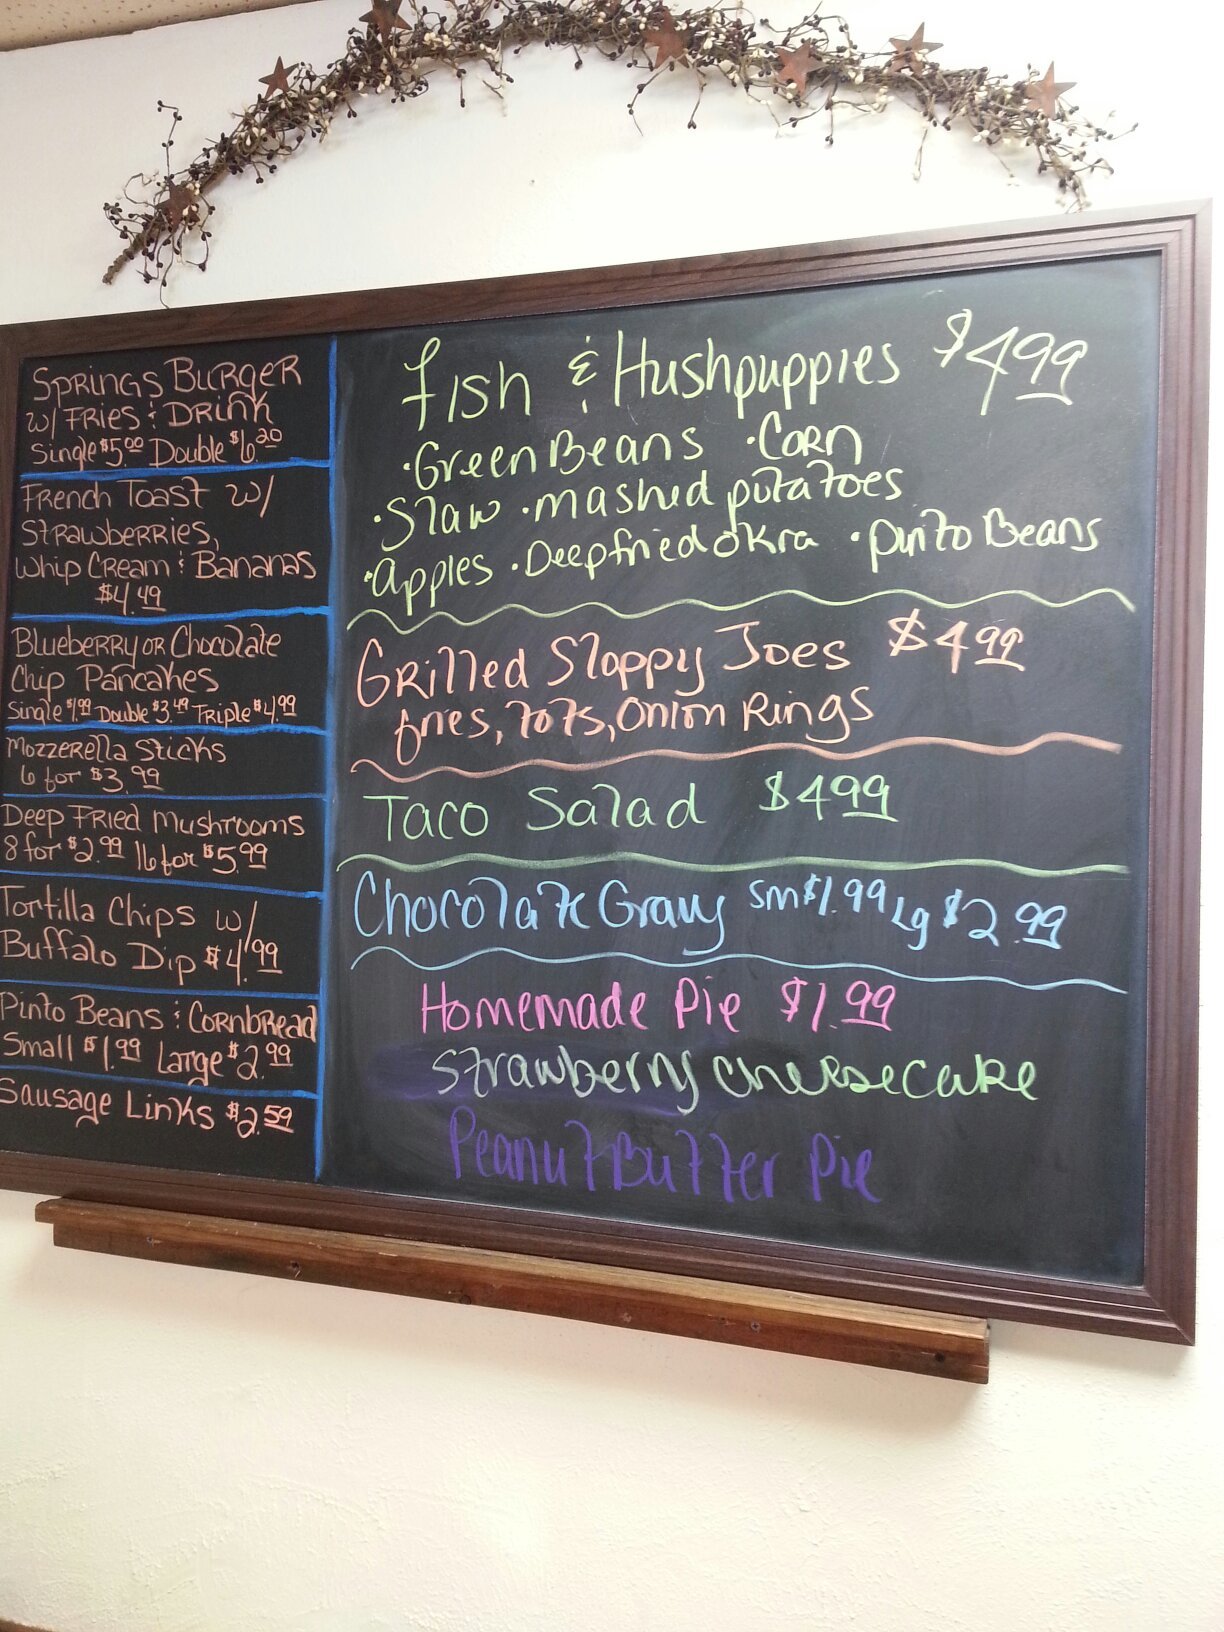 Springs Burger
w/ Fries & Drink
Single $5.00 Double $6.20
French Toast w/
Strawberries,
Whip Cream & Bananas
$4.49
Blueberry or Chocolate
Chip Pancakes
Single $1.99 Double $3.49 Triple $4.99
Mozzerella Sticks
6 for $3.99
Deep Fried Mushrooms
8 for $2.99 16 for $5.99
Tortilla Chips w/
Buffalo Dip $4.99
Pinto Beans & Cornbread
Small $1.99 Large $2.99
Sausage Links $2.59
Fish & Hushpuppies $4.99
• Green Beans • Corn
• Slaw • mashed potatoes
• Apples • Deep fried okra • pinto Beans
Grilled Sloppy Joes $4.99
fries, Tots, Onion Rings
Taco Salad $4.99
Chocolate Gravy Sm $1.99 Lg $2.99
Homemade Pie $1.99
Strawberry cheesecake
Peanut Butter Pie